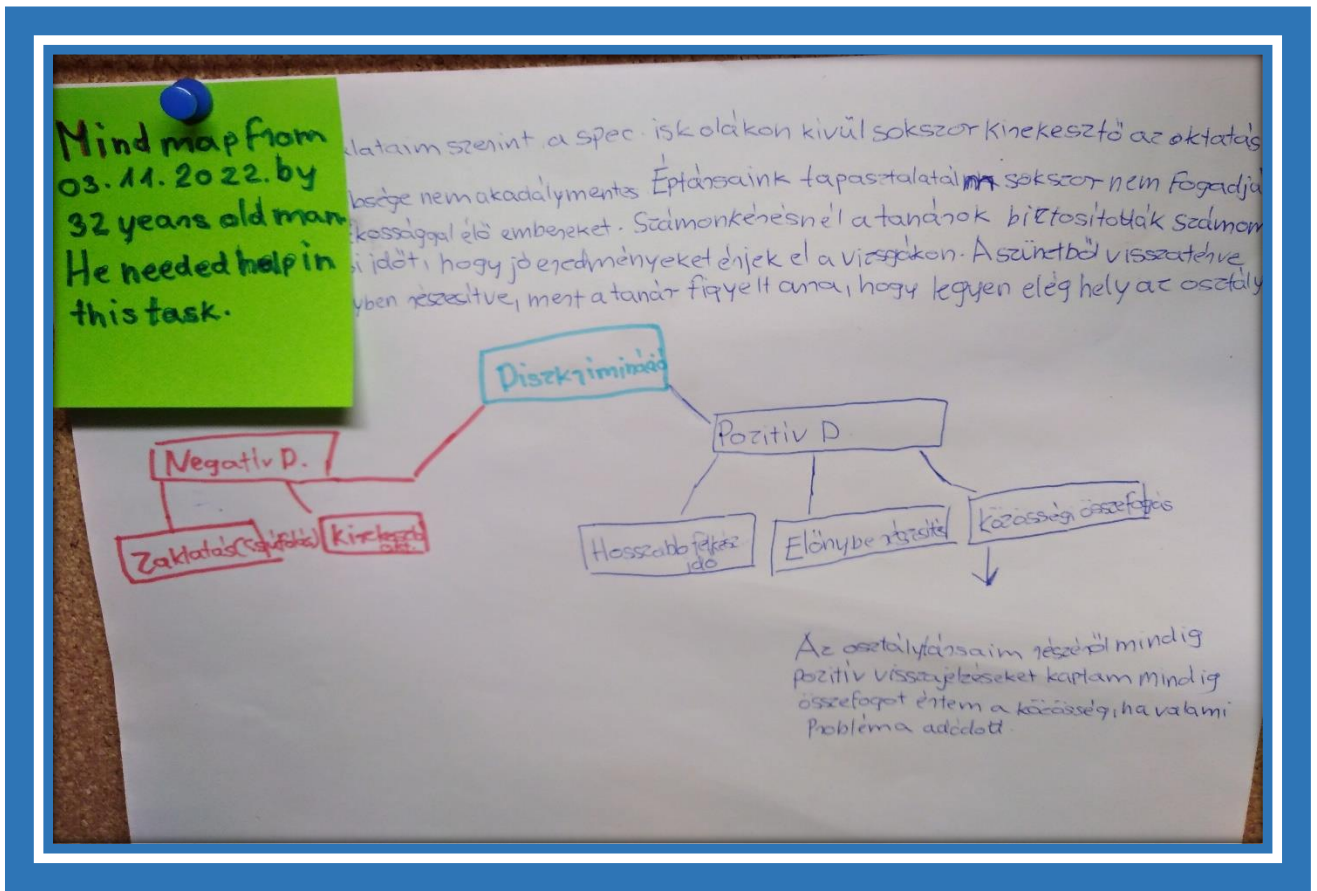 Mind map from
03.11.2022. by
32 years old man.
He needed help in
this task.
lataim szerint a spec. iskolákon kivül sokszor kirekesztő az oktatás
bsége nem akadálymentes Éptársaink tapasztalatai sokszor nem fogadja
kossággal élő embereket. Számonkérésnél a tanárok biztosították számom
i időt, hogy jó eredményeket érjek el a vizsgákon. A szünetből visszatérve
yben részesítve, mert a tanár figyelt arra, hogy legyen elég hely az osztály
Diszkrimináció
Negatív D.
Pozitív D.
Zaklatás (csúfolás)
Kirekesztő
okt.
Hosszabb felkész
idő
Előnybe részsítés
Közösségi összefogás
Az osztálytársaim részéről mindig
pozitív visszajelzéseket kaptam mindig
összefogot értem a közösség, ha valami
Probléma adódott.